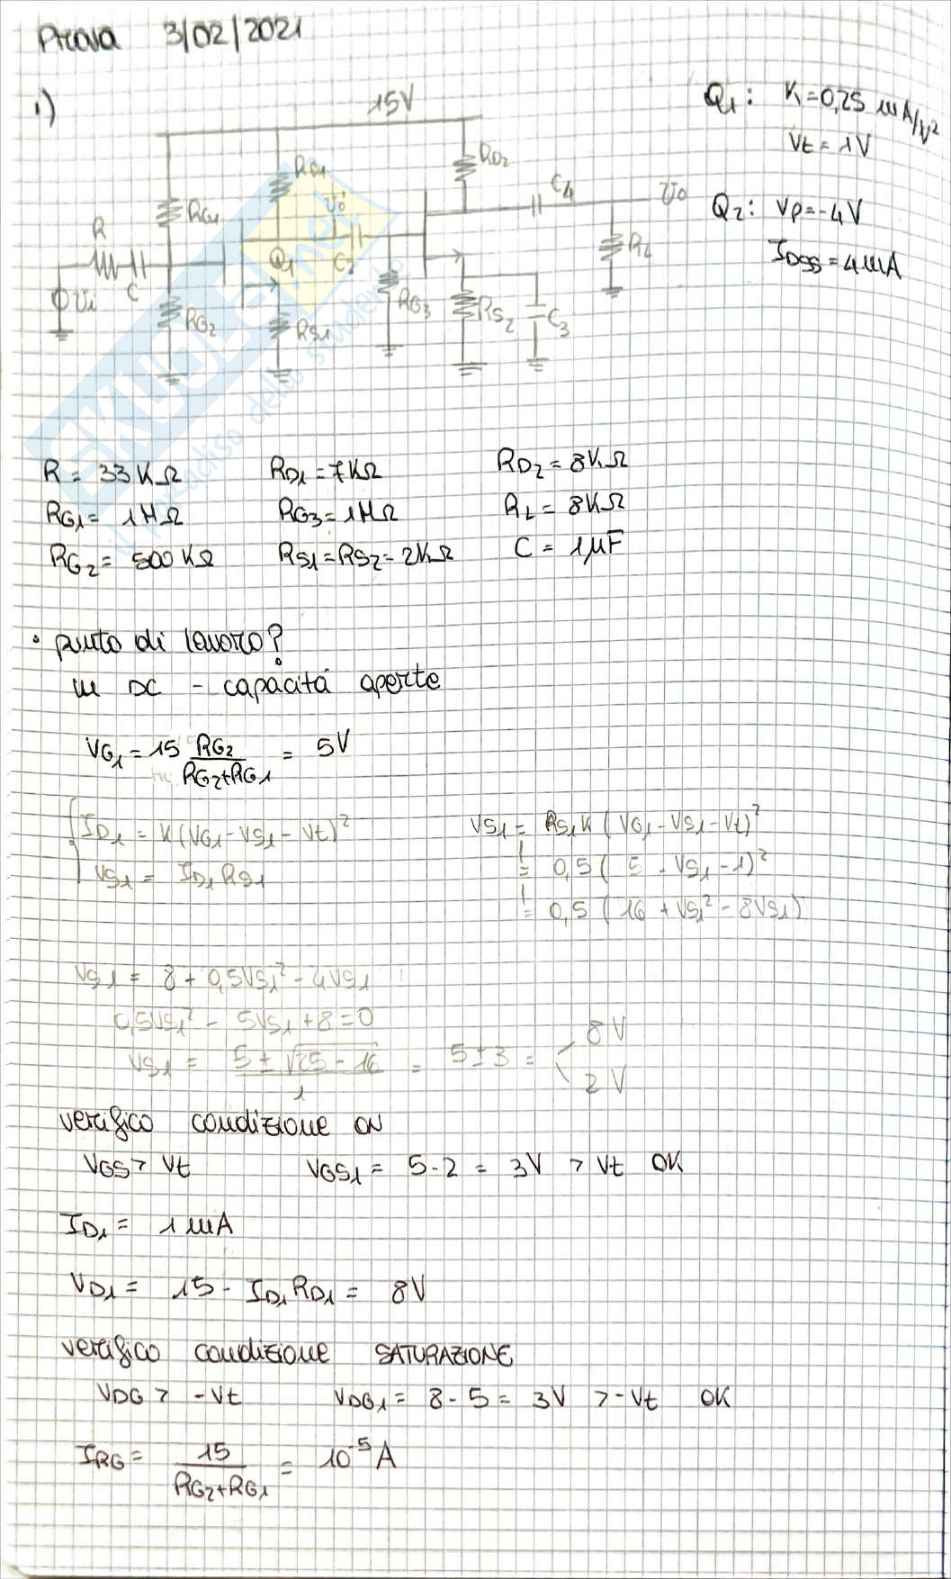 Prova 3/02/2021
1)
15V
Q1: K=0,25 mA/V²
Vt = 1V
Q2: Vp=-4V
IDSS=4mA
RG1
RD1
RD2
C4
vo
R
C
vi
Q1
RG2
RS1
RG3
RS2
C3
RL
SKUOLA.net
il paradiso dello studente
R = 33KΩ RD1=7KΩ RD2=8KΩ
RG1= 1MΩ RG3=1MΩ RL=8KΩ
RG2= 500KΩ RS1=RS2=2KΩ C=1μF
• punto di lavoro?
in DC - capacità aperte
VG1=15 RG2/(RG2+RG1) = 5V
ID1=K(VG1-VS1-Vt)² VS1= RS1K(VG1-VS1-Vt)²
VS1= ID1RS1 = 0,5(5-VS1-1)²
= 0,5(16+VS1²-8VS1)
VS1= 8+0,5VS1²-4VS1
0,5VS1²-5VS1+8=0
VS1= (5±√(25-16))/1 = 5±3 = 8V
2V
verifico condizione ON
VGS>Vt VGS1= 5-2 = 3V >Vt OK
ID1= 1mA
VD1= 15-ID1RD1= 8V
verifico condizione SATURAZIONE
VDG>-Vt VDG1=8-5=3V >-Vt OK
IRG= 15/(RG2+RG1) = 10⁻⁵A